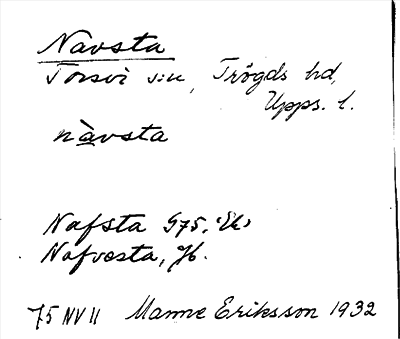 Navsta
Torsvi s:n, Trögds hd,
Upps. l.
nàvsta
Nafsta G75, Ek
Nafvesta, Jb.
75 NV II Manne Eriksson 1932